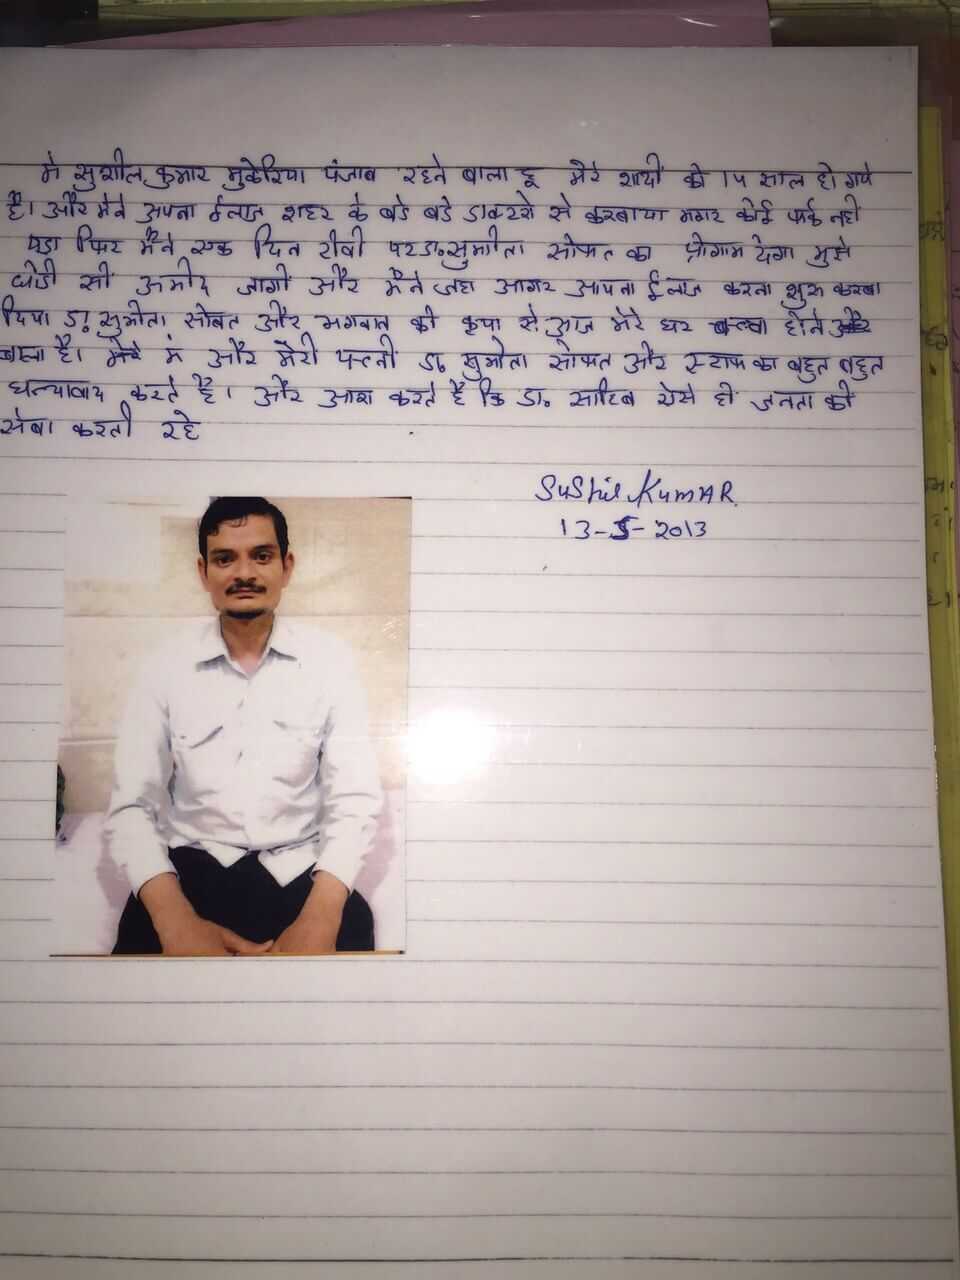 मे सुशील कुमार मुकेरिया पंजाब रहने बाला हू मेरे शादी को 14 साल हो गये
है। और मेने अपना ईलाज शहर के बडे बडे डाक्टरो से करबाया मगर कोई फर्क नही
पड़ा फिर मैने एक दिन टीवी पर डा॰ सुमीता सोफत का प्रोगाम देगा मुझे
थोडी सी उमीद जागी और मैने जहा आगर आपना ईलाज करना शुरू करबा
दिया डा॰ सुमीता सोबत और भगवान की कृपा से आज मेरे घर बच्चा होने
बाला है। में और मेरी पत्नी डा॰ सुमीता सोफत और स्टाफ का बहुत बहुत
धन्याबाद करते है। और आशा करते है कि डा॰ साहिब ऐसे ही जनता की
सेबा करती रहे
SuShil KumAR.
13-5-2013